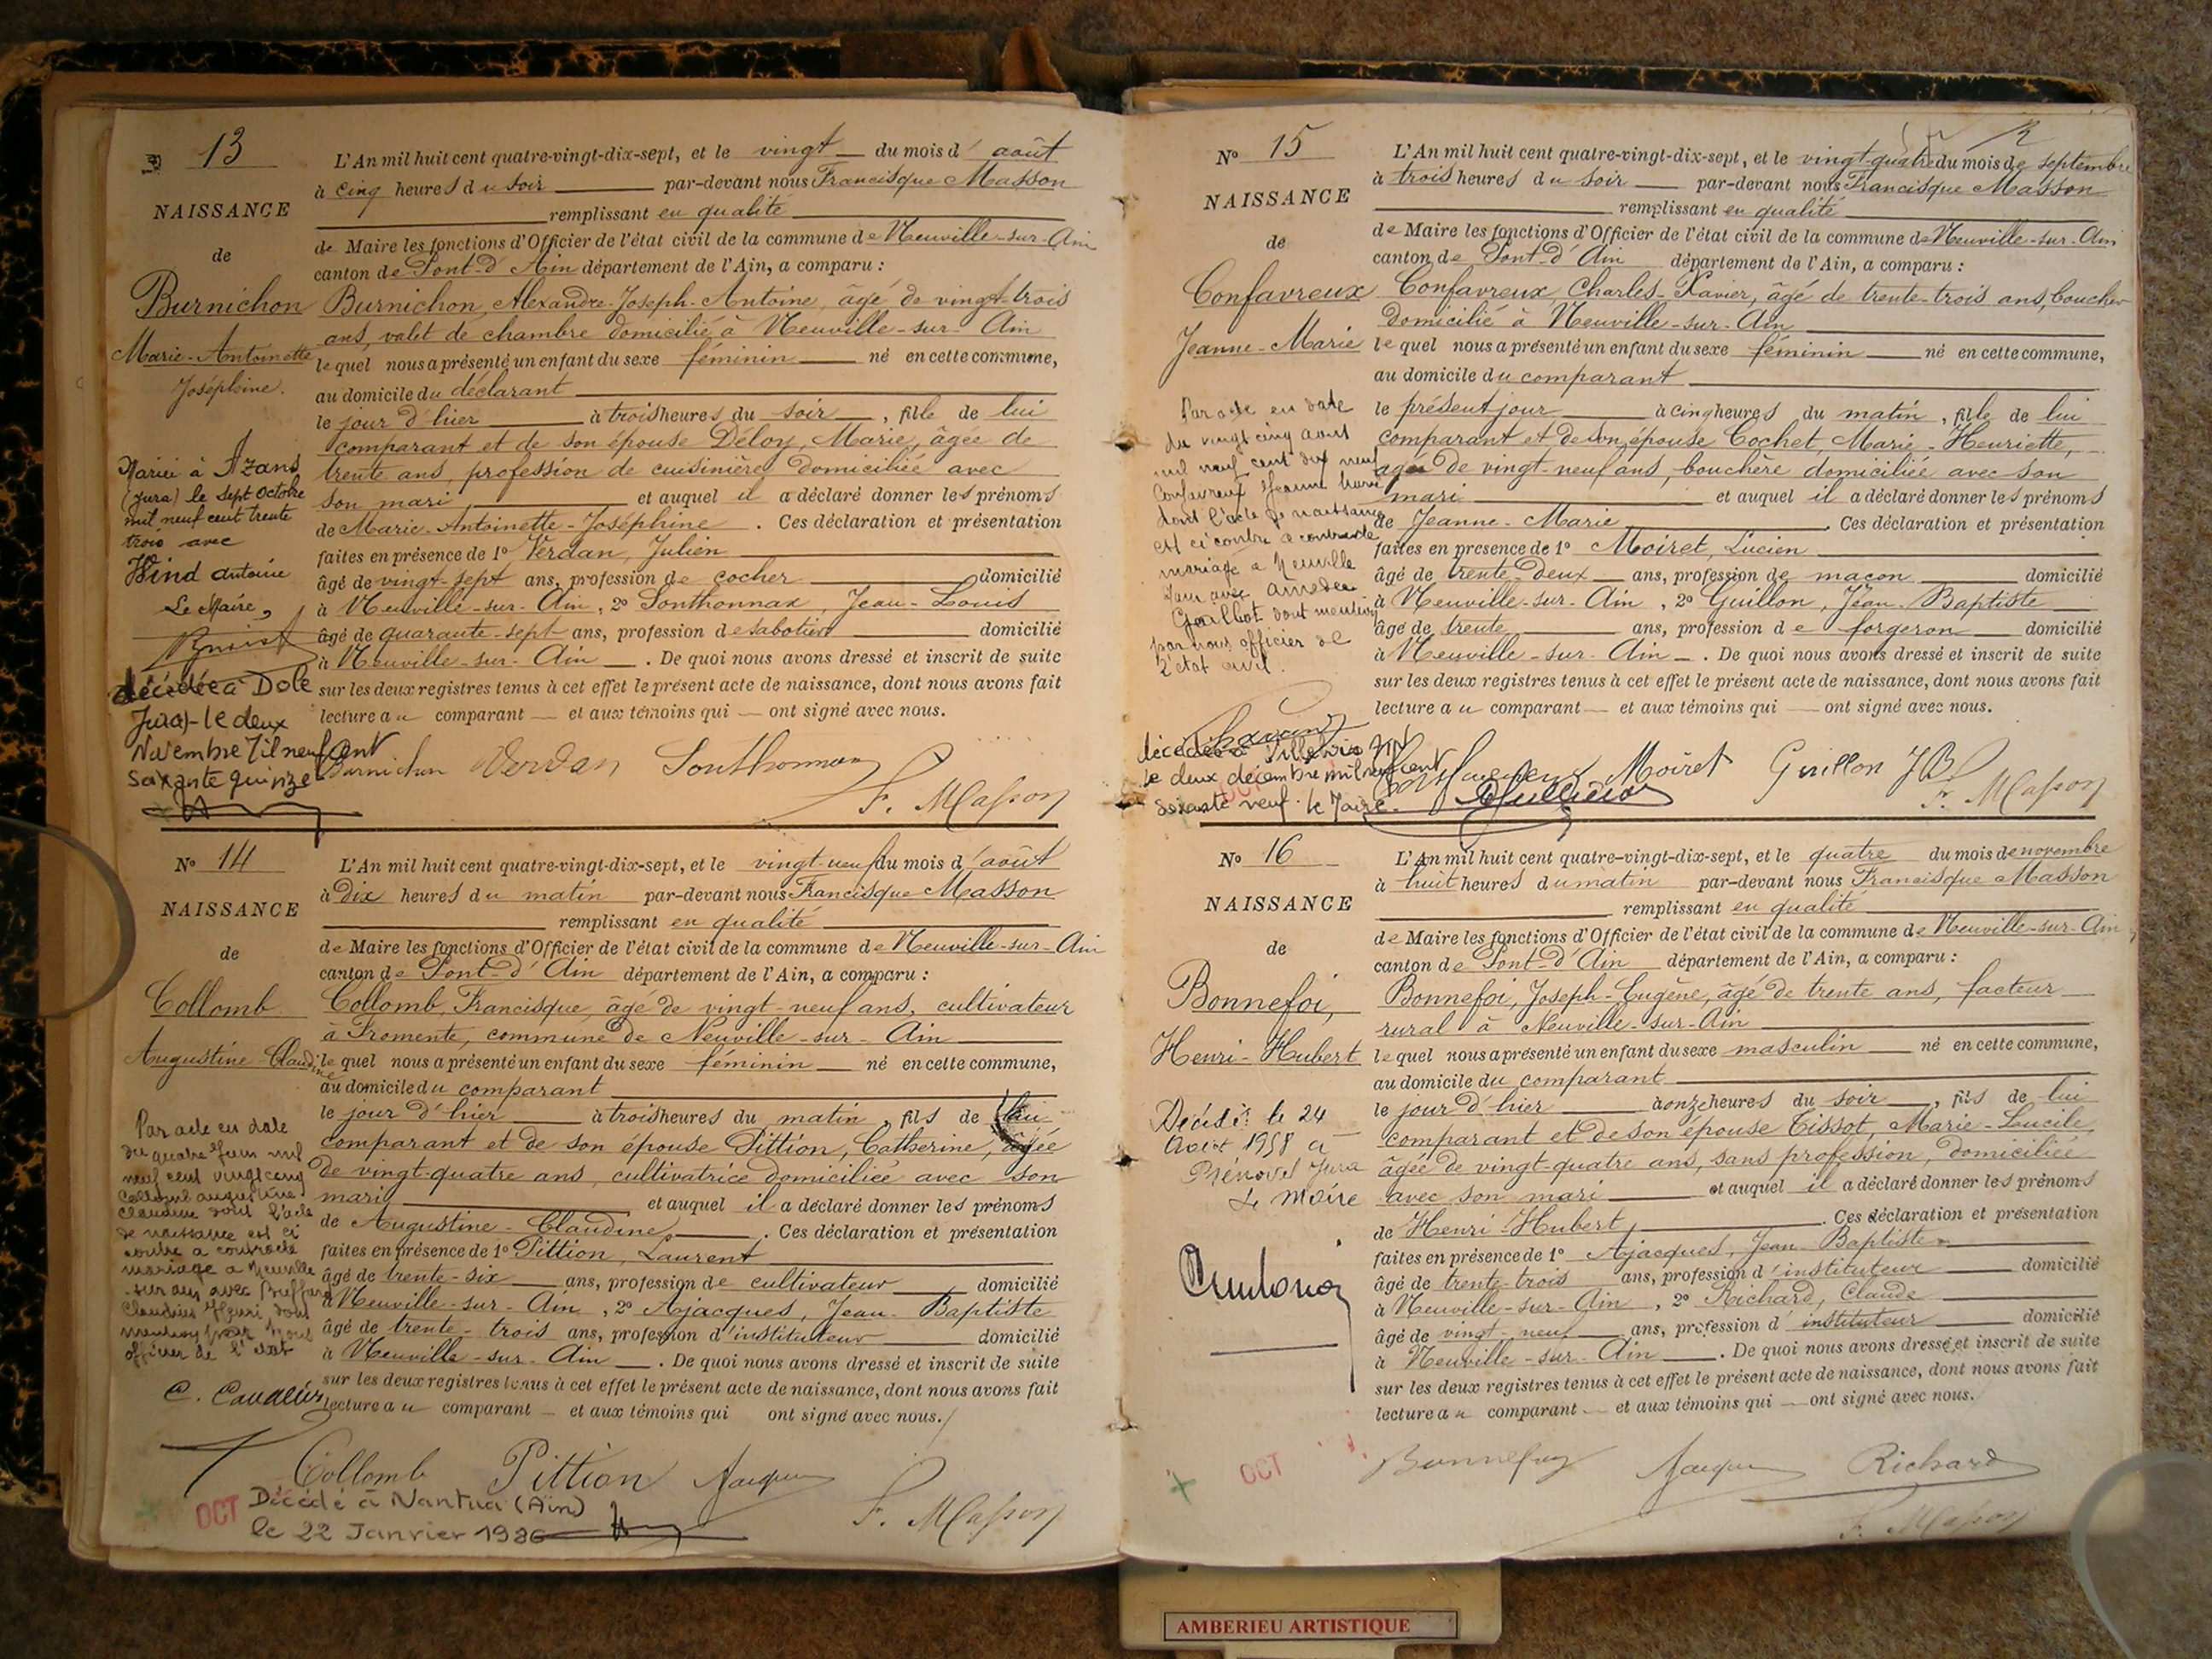 No 13
NAISSANCE
de
Burnichon
Marie-Antoinette
Joséphine.
Mariée à Azans
(Jura) le sept Octobre
mil neuf cent trente
trois avec
Hind Antoine
Le Maire,
décédée à Dole
Jura)-le deux
Novembre Mil neuf Cent
Soixante quinze
L'An mil huit cent quatre-vingt-dix-sept, et le vingt du mois d'août
à cinq heures du soir par-devant nous Francisque Masson
remplissant en qualité
de Maire les fonctions d'Officier de l'état civil de la commune de Neuville-sur-Ain
canton de Pont-d'Ain département de l'Ain, a comparu :
Burnichon, Alexandre-Joseph-Antoine, âgé de vingt-trois
ans, valet de chambre domicilié à Neuville-sur-Ain
lequel nous a présenté un enfant du sexe féminin né en cette commune,
au domicile du déclarant
le jour d'hier à trois heures du soir, fille de lui
comparant et de son épouse Déloy, Marie, âgée de
trente ans, profession de cuisinière domiciliée avec
son mari et auquel il a déclaré donner les prénoms
de Marie-Antoinette-Joséphine. Ces déclaration et présentation
faites en présence de 1° Verdan, Julien
âgé de vingt-sept ans, profession de cocher domicilié
à Neuville-sur-Ain, 2° Sonthonnax, Jean-Louis
âgé de quarante-sept ans, profession de sabotier domicilié
à Neuville-sur-Ain. De quoi nous avons dressé et inscrit de suite
sur les deux registres tenus à cet effet le présent acte de naissance, dont nous avons fait
lecture au comparant et aux témoins qui ont signé avec nous.
Burnichon Verdan Sonthonnax
F. Masson
No 14
NAISSANCE
de
Collomb
Augustine Claudine
Par acte en date
du quatre Juin mil
neuf cent vingt cinq
Collomb Augustine
Claudine dont l'acte
de naissance est ci
contre a contracté
mariage a Neuville
sur ain avec Buffard
Claudius Henri dont
mention par nous
officier de l'état
L'An mil huit cent quatre-vingt-dix-sept, et le vingt-neuf du mois d'août
à dix heures du matin par-devant nous Francisque Masson
remplissant en qualité
de Maire les fonctions d'Officier de l'état civil de la commune de Neuville-sur-Ain
canton de Pont-d'Ain département de l'Ain, a comparu :
Collomb, Francisque, âgé de vingt-neuf ans, cultivateur
à Fromente, commune de Neuville-sur-Ain
lequel nous a présenté un enfant du sexe féminin né en cette commune,
au domicile du comparant
le jour d'hier à trois heures du matin, fils de lui
comparant et de son épouse Pittion, Catherine, âgée
de vingt-quatre ans, cultivatrice domiciliée avec son
mari et auquel il a déclaré donner les prénoms
de Augustine-Claudine. Ces déclaration et présentation
faites en présence de 1° Pittion, Laurent
âgé de trente-six ans, profession de cultivateur domicilié
à Neuville-sur-Ain, 2° Ajacques, Jean-Baptiste
âgé de trente-trois ans, profession d'instituteur domicilié
à Neuville-sur-Ain. De quoi nous avons dressé et inscrit de suite
sur les deux registres tenus à cet effet le présent acte de naissance, dont nous avons fait
lecture au comparant et aux témoins qui ont signé avec nous.
Collomb Pittion
F. Masson
OCT
Décédé à Nantua (Ain)
le 22 Janvier 1986
No 15
NAISSANCE
de
Confavreux
Jeanne-Marie
Par acte en date
du vingt cinq aout
mil neuf cent dix neuf
Confavreux Jeanne Marie
dont l'acte de naissance
est ci contre a contracté
mariage a Neuville
s/ain avec Amédée
Gaillot dont mention
par nous officier de
l'état civil.
décédée à
le deux décembre mil neuf cent
soixante neuf. le Maire.
L'An mil huit cent quatre-vingt-dix-sept, et le vingt-quatre du mois de septembre
à trois heures du soir par-devant nous Francisque Masson
remplissant en qualité
de Maire les fonctions d'Officier de l'état civil de la commune de Neuville-sur-Ain
canton de Pont-d'Ain département de l'Ain, a comparu :
Confavreux Charles-Xavier, âgé de trente-trois ans, boucher
domicilié à Neuville-sur-Ain
lequel nous a présenté un enfant du sexe féminin né en cette commune,
au domicile du comparant
le présent jour à cinq heures du matin, fille de lui
comparant et de son épouse Cochet, Marie-Henriette,
agée de vingt-neuf ans, bouchère domiciliée avec son
mari et auquel il a déclaré donner les prénoms
de Jeanne-Marie. Ces déclaration et présentation
faites en présence de 1° Moiret, Lucien
âgé de trente-deux ans, profession de maçon domicilié
à Neuville-sur-Ain, 2° Guillon, Jean-Baptiste
âgé de trente ans, profession de forgeron domicilié
à Neuville-sur-Ain. De quoi nous avons dressé et inscrit de suite
sur les deux registres tenus à cet effet le présent acte de naissance, dont nous avons fait
lecture au comparant et aux témoins qui ont signé avec nous.
Confavreux Moiret Guillon JB
F. Masson
No 16
NAISSANCE
de
Bonnefoi,
Henri-Hubert
Décédé le 24
Août 1958 à
Prénovel Jura
Le Maire
L'An mil huit cent quatre-vingt-dix-sept, et le quatre du mois de novembre
à huit heures du matin par-devant nous Francisque Masson
remplissant en qualité
de Maire les fonctions d'Officier de l'état civil de la commune de Neuville-sur-Ain
canton de Pont-d'Ain département de l'Ain, a comparu :
Bonnefoi, Joseph-Eugène, âgé de trente ans, facteur
rural à Neuville-sur-Ain
lequel nous a présenté un enfant du sexe masculin né en cette commune,
au domicile du comparant
le jour d'hier à onze heures du soir, fils de lui
comparant et de son épouse Tissot, Marie-Loucile,
âgée de vingt-quatre ans, sans profession, domiciliée
avec son mari et auquel il a déclaré donner les prénoms
de Henri Hubert. Ces déclaration et présentation
faites en présence de 1° Ajacques, Jean-Baptiste
âgé de trente-trois ans, profession d'instituteur domicilié
à Neuville-sur-Ain, 2° Richard, Claude
âgé de vingt-neuf ans, profession d'instituteur domicilié
à Neuville-sur-Ain. De quoi nous avons dressé et inscrit de suite
sur les deux registres tenus à cet effet le présent acte de naissance, dont nous avons fait
lecture au comparant et aux témoins qui ont signé avec nous.
OCT
Bonnefoy Richard
F. Masson
AMBERIEU ARTISTIQUE